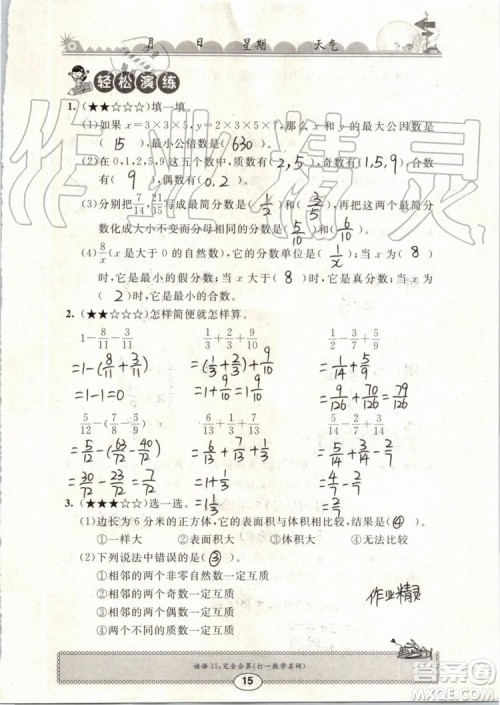 月 日 星期 天气
轻松演练
1. (★★☆☆☆)填一填。
(1)如果x=3×3×5,y=2×3×5×7,那么x和y的最大公因数是
( 15 ),最小公倍数是( 630 )。
(2)在0,1,2,5,9这五个数中,质数有( 2,5 ),奇数有( 1,5,9 ),合数
有( 9 ),偶数有( 0,2 )。
(3)分别把7/14,21/35写成最简分数是( 1/2 )和( 3/5 ),再把这两个最简分
数化成大小不变而分母相同的分数是( 5/10 )和( 6/10 )。
(4)8/x(x是大于0的自然数),它的分数单位是( 1/x );当x为( 8 )
时,它是最小的假分数;当x大于( 8 )时,它是真分数;当x为
( 2 )时,它是最小的合数。
2. (★★☆☆☆)怎样简便就怎样算。
1-8/11-3/11 1/3+2/3+9/10 1/2-3/7+5/9
=1-(8/11+3/11) =(1/3+2/3)+9/10 =1/14+5/9
=1-1=0 =1+9/10 =9/126+70/126=79/126
5/12-(7/8-5/9) 6/13+1/3+7/13 5/14+3/7
=5/12-(63/72-40/72) =6/13+7/13+1/3 =5/14+6/14
=30/72-23/72=7/72 =1+1/3 =11/14
3. (★★★☆☆)选一选。
(1)边长为6分米的正方体,它的表面积与体积相比,结果是( ④ )。
①一样大 ②表面积大 ③体积大 ④无法比较
(2)下列说法中错误的是( ③ )。
①相邻的两个非零自然数一定互质
②相邻的两个奇数一定互质
③相邻的两个合数一定互质
④两个不同的质数一定互质
作业精灵
谜语15:完全合算(打一数学名词)
15
作业精灵